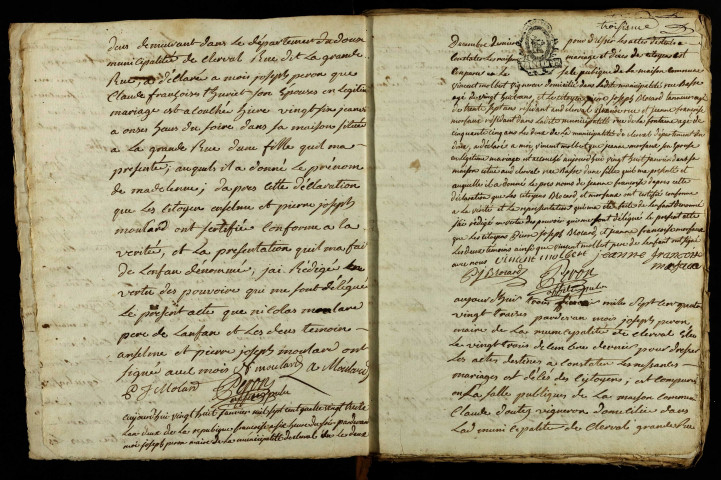 deux demeurant dans le département du doux
municipalité de clerval Rue dit la grande
Rue a déclaré a moi joseph peron que
Claude françoise thuriet son Epouse en legitim
mariage est alouché hiere vingt six janvier
a onses heurs du soire, dans sa maison située
a la grande Rue d'une fille quil ma
présenté; auquels il a donné le prénome
de madelenne; d'apres cette déclaration
que les citoyen anselme et pierre joseph
moulard ont sertifié conforme a la
verité, et la presentation quil ma fait
de lanfan denommé, jai Rédigé En
vertu des pouvoire qui me sont délégué
Le present acte que nicolas moulard
pere de lanfan et Les deux temoin
anselme et pierre joseph moulard ont
signée avec mois N moulard A Moulard
P J Molard Peron
officier public
aujourdhuy vingt huit janvier mil sept cent quatre vingt treize
Lan deux de la republique francoise a six heure du soir pardevan
moi joseph peron maire de la municipalité de clerval élu le deux
troisieme
Decembre dernier pour dresser Les actes destiné a
Constater les naissance mariage et déces des citoyens est
Comparus en la salle publique de la maison commune
Vincent molbert vigneron domicilié dans ladite municipalité rue Basse
agé de vingt huit ans et les citoyens pierre joseph Blocard tanneur agé
de trente sept ans residant audit clerval grande rue et jeanne françoise
morfaux residant dans ladite municipalité rue de la fontaine agé de
cinquante cinq ans les deux de la municipalité de clerval département du
doux, a déclaré a moi, vincent molbert que jeanne morfaux son epouse
en legitime mariage est accouché aujourdhuy vingt huit janvier dans sa
maison située audit clerval rue Basse d'une fille quil ma presenté et
auquelle il a donné les pre noms de jeanne francoise dapres cette
déclaration que les citoyens Blocard et morfaux ont certifié conforme
a la verité et la representation qui ma été faite de lenfant denommé
jai rédigé en vertu des pouvoir qui me sont délégué le present acte
que les citoyens pierre joseph Blocard, et jeanne francoise morfaux
les deux temoins ainsi que vincent molbert pere de lenfant ont signé
avec nous vincent molbert jeanne françoise
morfaux
P J Blocard Peron
officier public
aujourdhuit trois fevrier mile sept cent quatre
vingt traises pardevan mois joseph peron
maire de la municipalité de clerval élus
le vingt trois decembre dernier pour dresser
Les actes destinés a constater Les naissances
mariages et délés des Citoyens; est Comparus
en La salle publiques de La maison Commune
Claude doutey vigneron domicilié dans
Lad municipalité de Clerval grande Rue